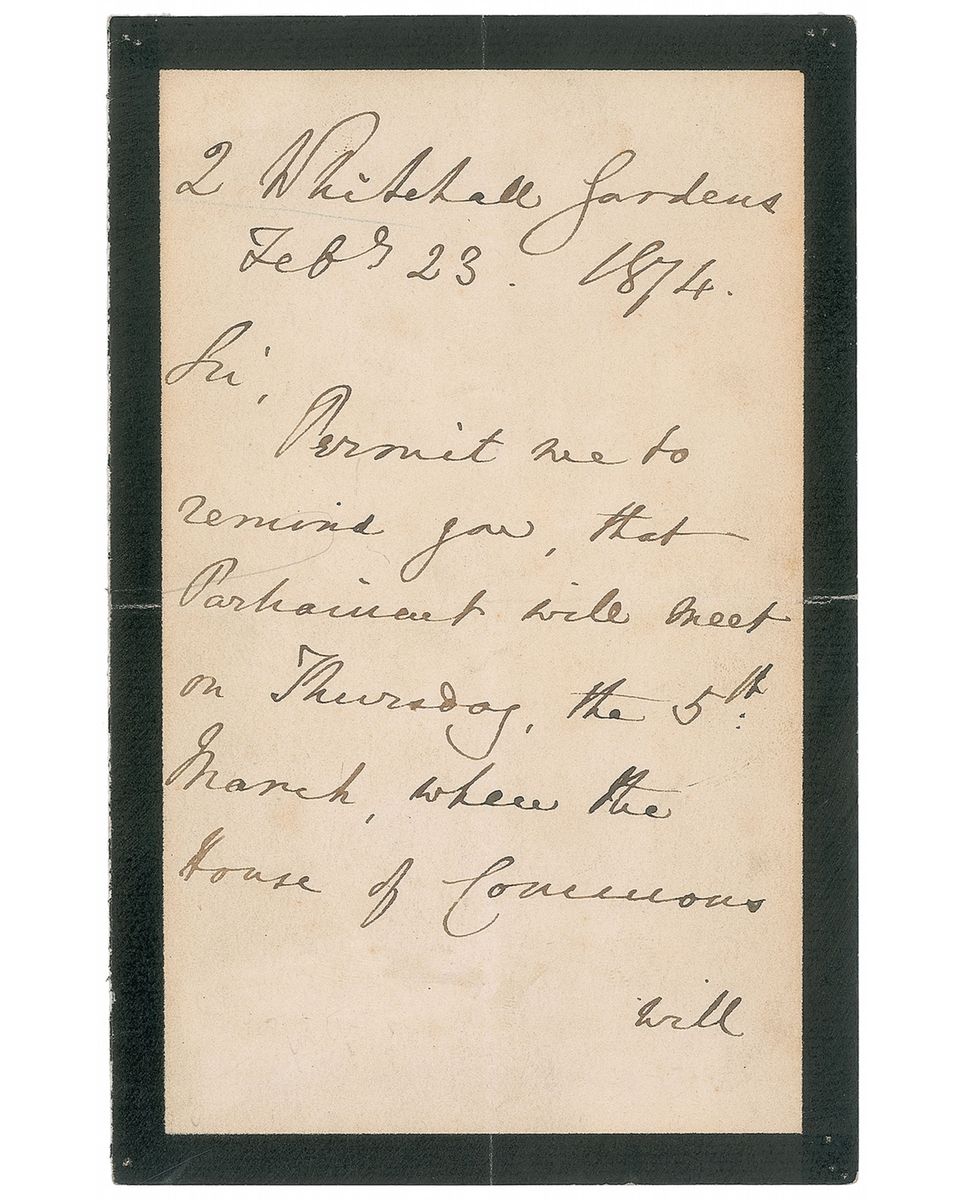 2 Whitehall Gardens
Feby 23. 1874.
Sir,
Permit me to
remind you, that
Parliament will meet
on Thursday, the 5th.
March, when the
House of Commons
will